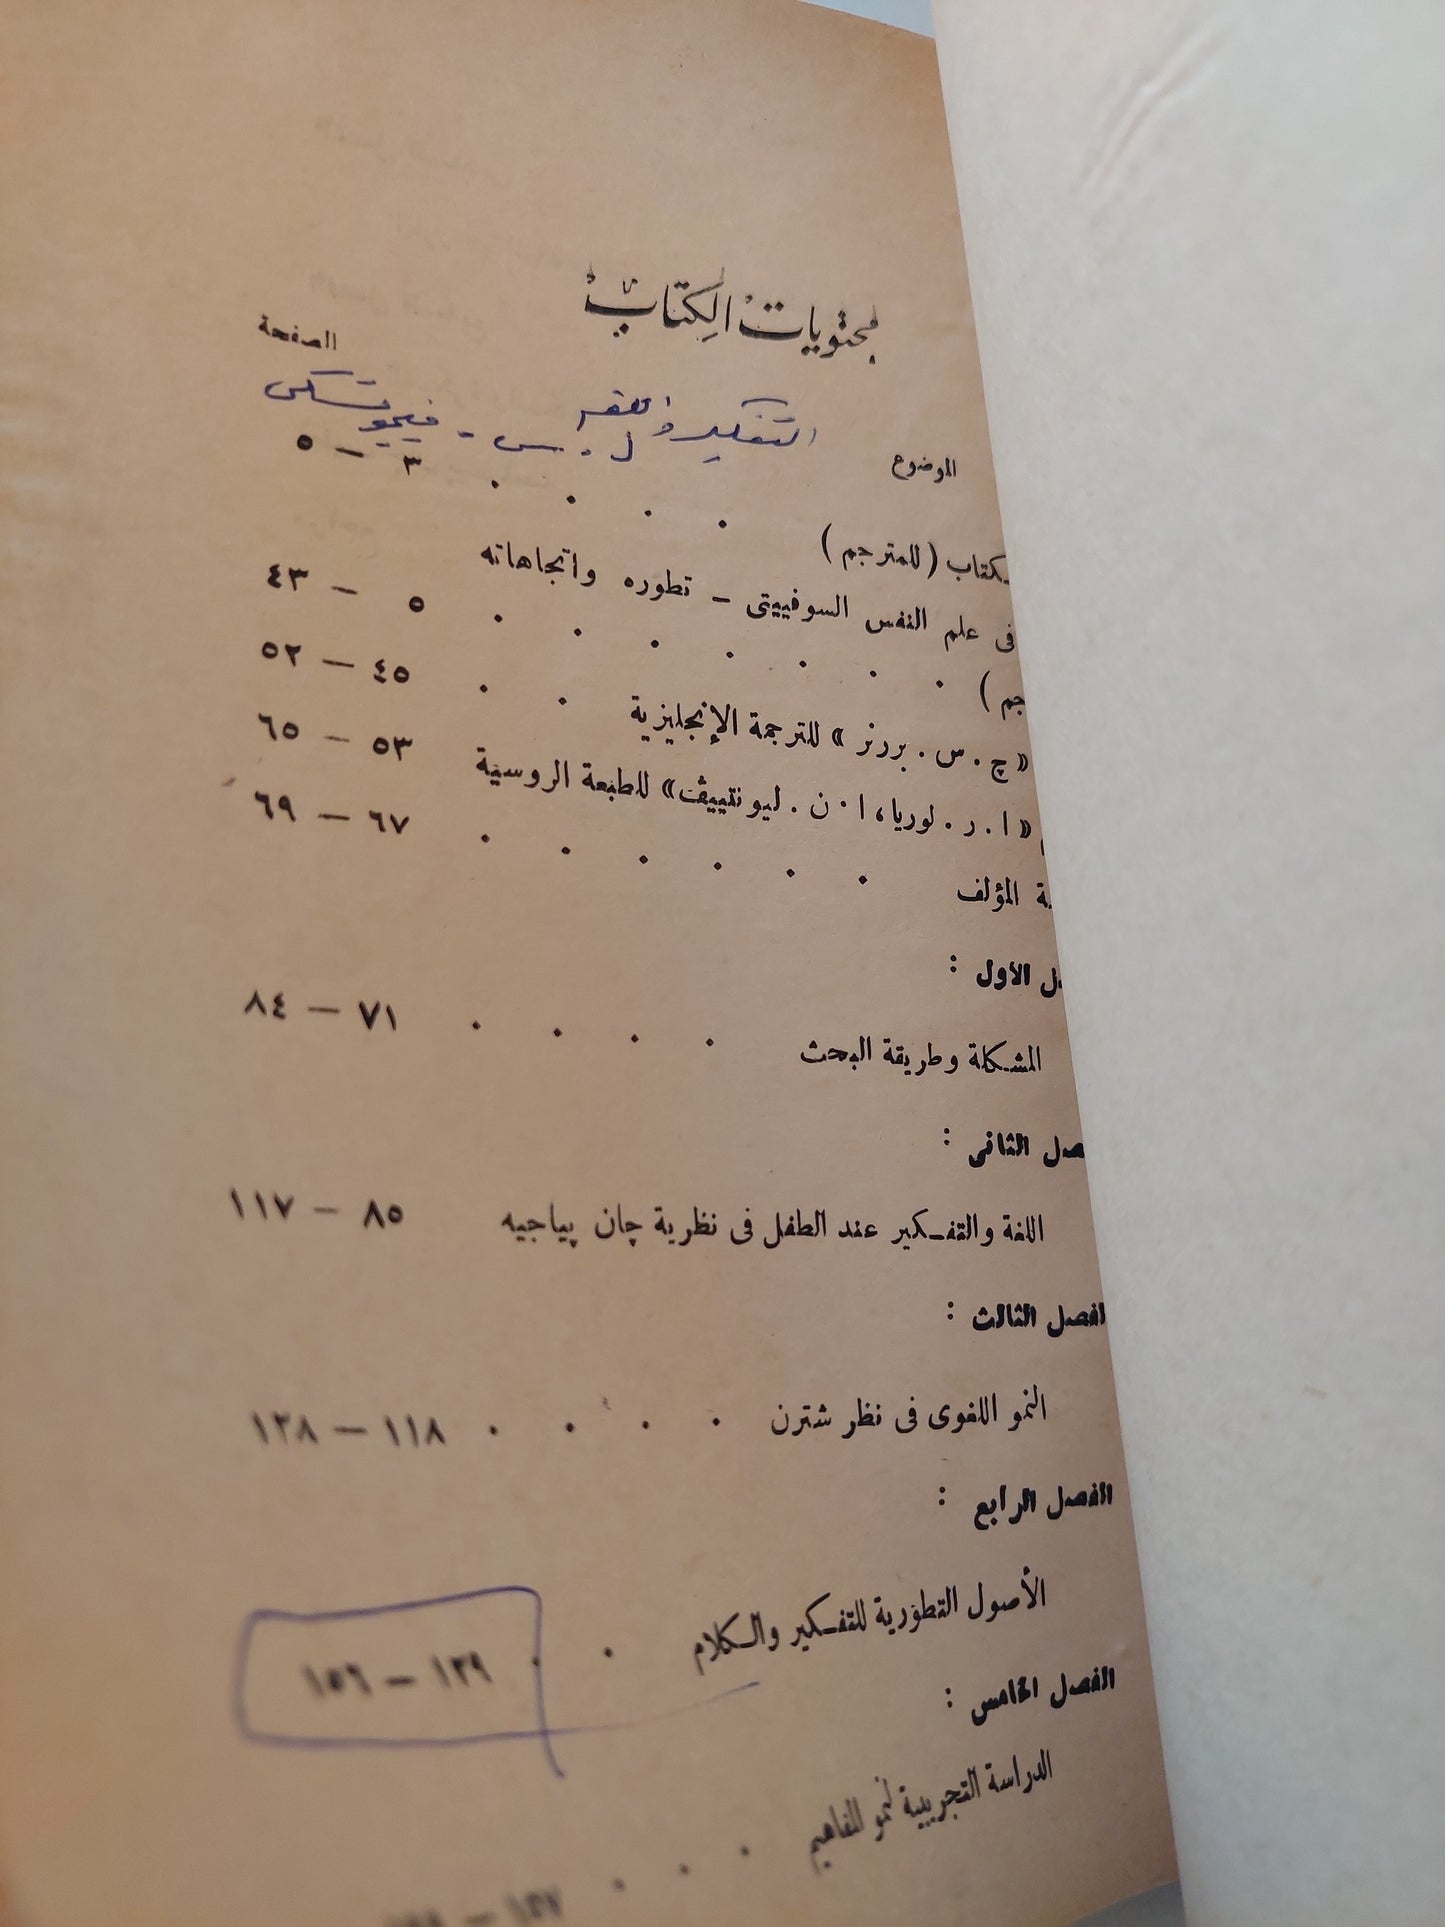 محتويات الكتاب
الصفحة
التفكير واللغة
ل. س - فيجوتسكى
الموضوع
٣ — ٥
كتاب (للمترجم) . . . .
فى علم النفس السوفييتى - تطوره واتجاهاته
جم) . . . . . . . ٥ — ٤٣
« ج . س . بررنر » للترجمة الإنجليزية . . ٤٥ — ٥٢
« ا . ر . لوريا، ا . ن . ليونتييڤ» للطبعة الروسية ٥٣ — ٦٥
ة المؤلف . . . . . . ٦٧ — ٦٩
ل الأول :
المشكلة وطريقة البحث . . . . ٧١ — ٨٤
صل الثانى :
اللغة والتفكير عند الطفل فى نظرية چان پياجيه ٨٥ — ١١٧
لفصل الثالث :
النمو اللغوى فى نظر شترن . . . . ١١٨ — ١٢٨
الفصل الرابع :
الأصول التطورية للتفكير والكلام . . ١٢٩ — ١٥٦
الفصل الخامس :
الدراسة التجريبية لنمو المفاهيم . . .